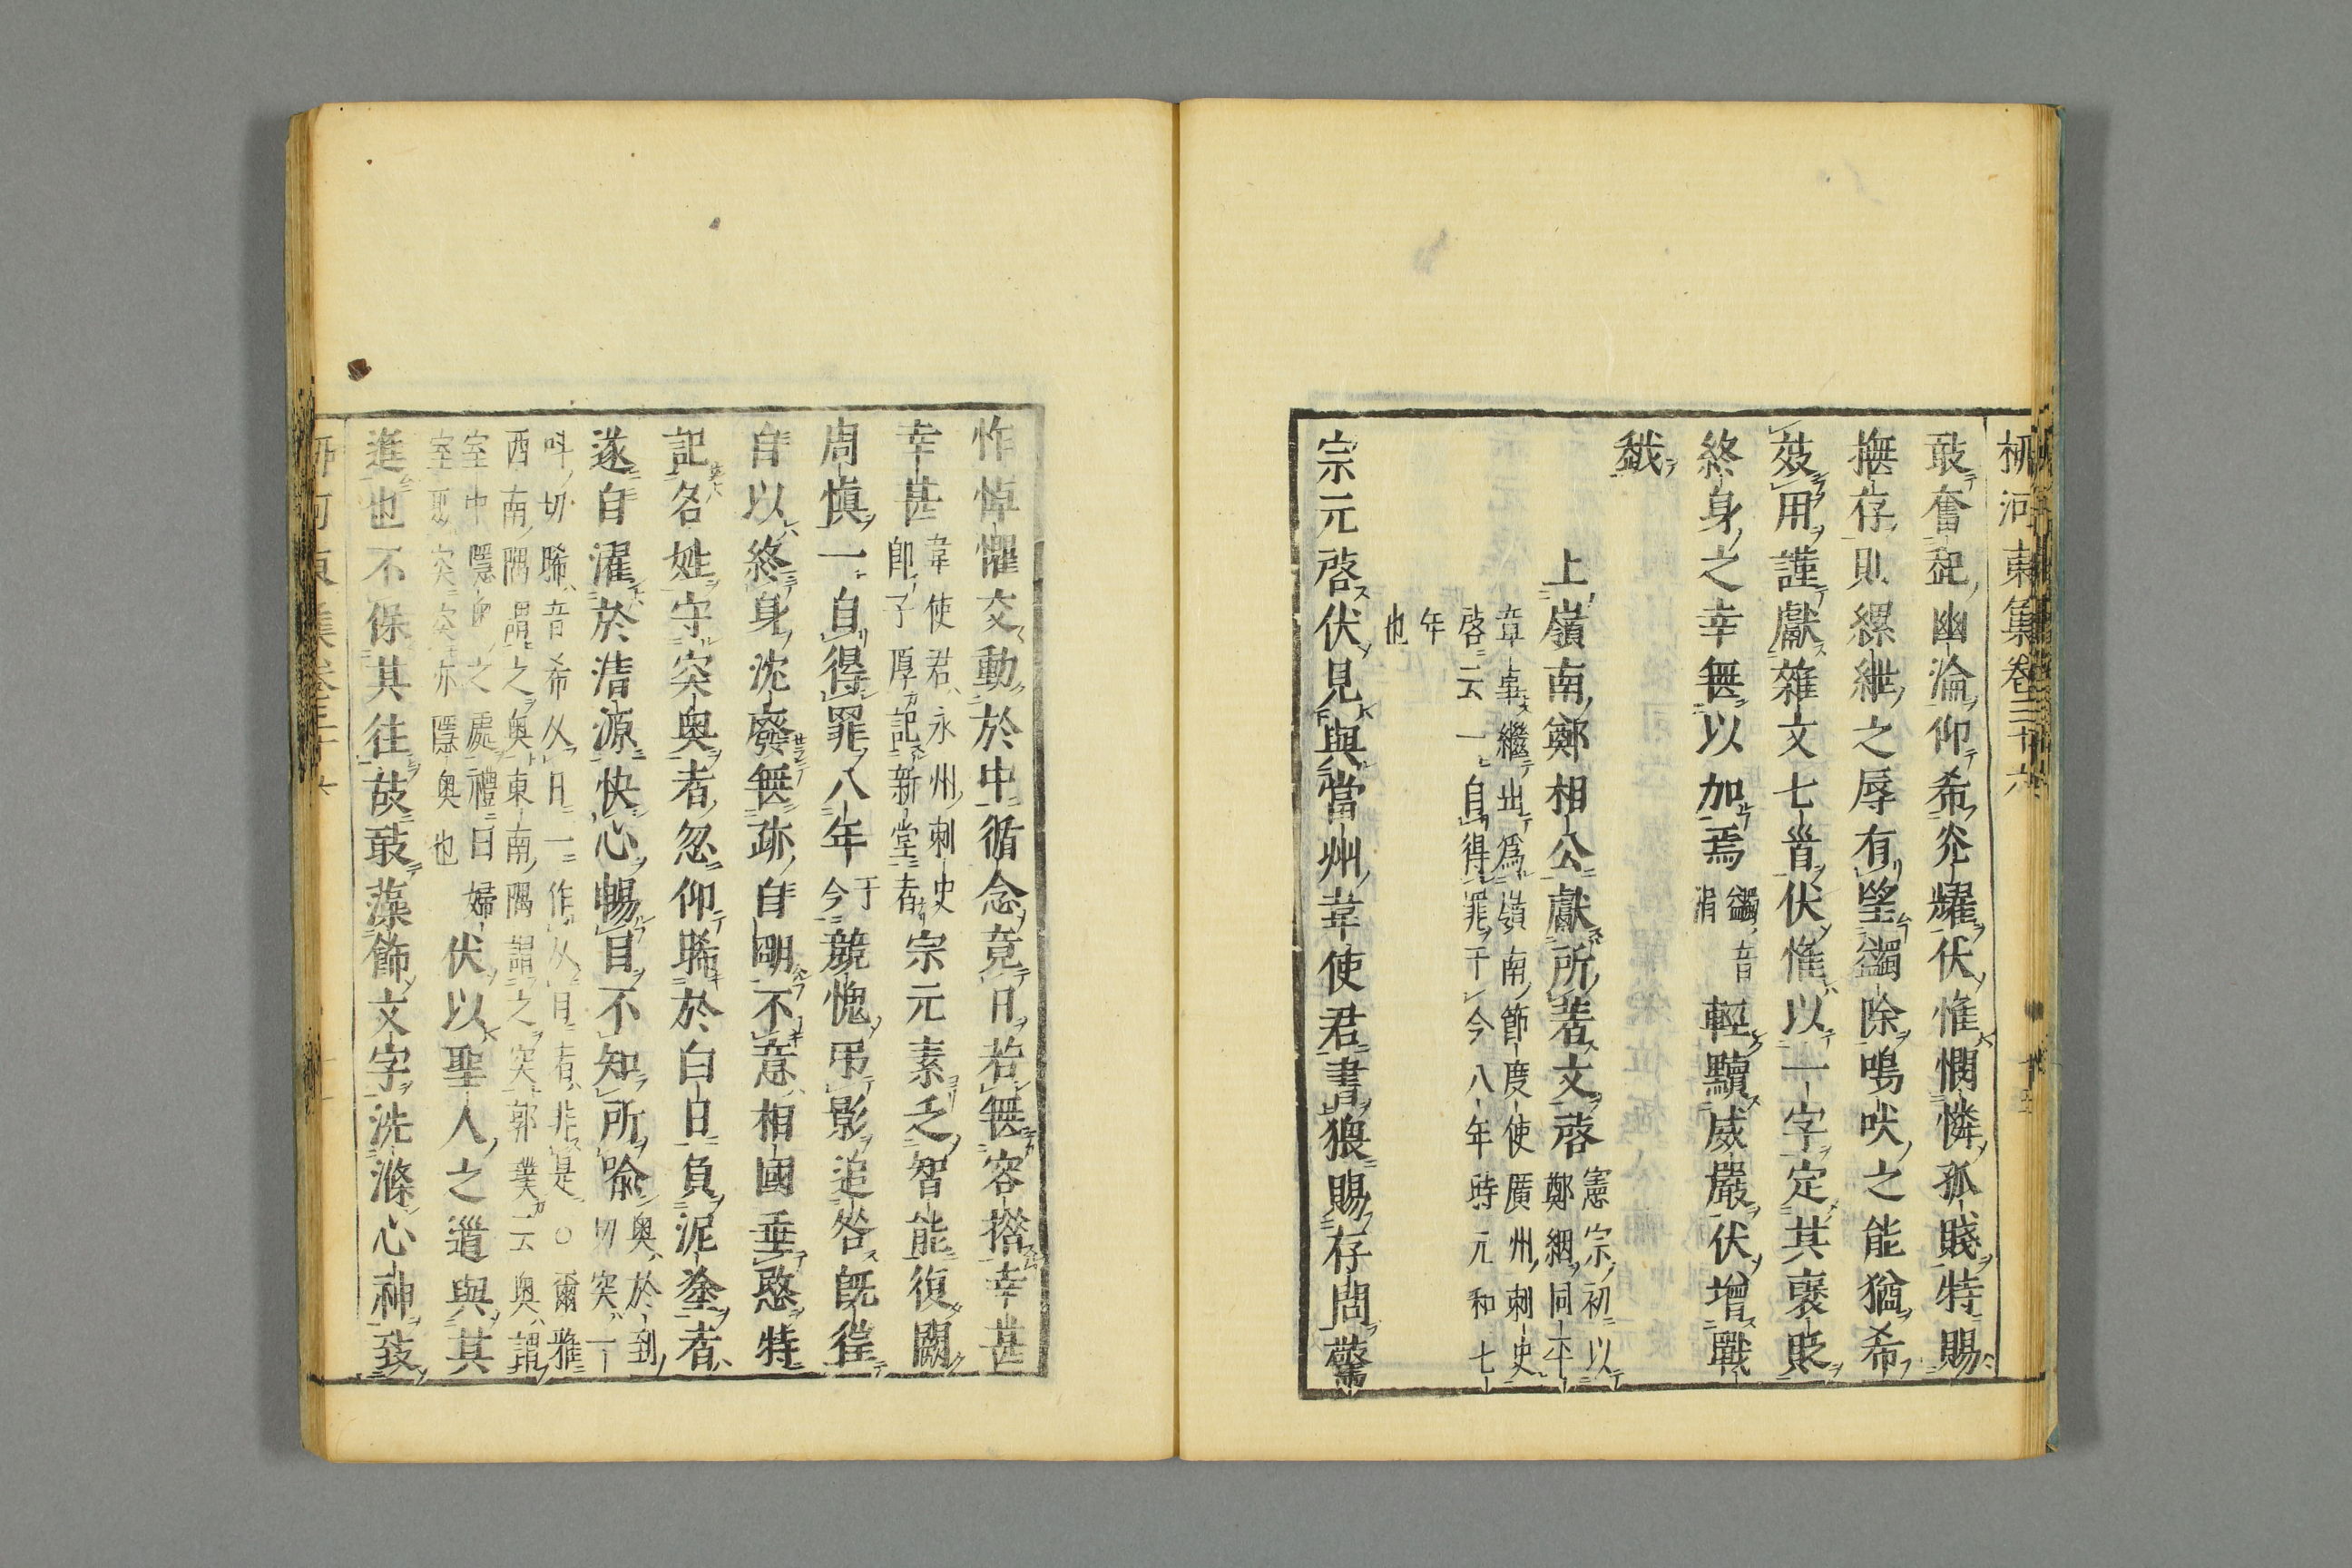 柳河東集卷三十六 十五
敢奮起幽淪仰希光耀伏惟憫憐孤賤特賜
撫存則縲紲之辱有望蠲除鳴吠之能猶希
效用謹獻雜文七首伏惟以一字定其褒貶
終身之幸無以加焉蠲音涓輕黷威嚴伏增戰
上嶺南鄭相公獻所著文啓憲宗初以鄭絪同平
章事繼出爲嶺南節度使廣州刺史
啓云一自得罪于今八年時元和七
年
也
宗元啓伏見與當州韋使君書猥賜存問驚
怍悼懼交動於中循念竟日若無容措幸甚
幸甚韋使君永州刺史即子厚記新堂者宗元素乏智能復闕
周慎一自得罪八年于今兢愧弔影追咎既往
自以終身沈廢無跡自明不意相國垂愍特
記名姓守突奧者忽仰睎於白日負泥塗者
遂自濯於清源快心暢目不知所喻奧於到切突一
叫切睎音希从日一作从目者非是○爾雅
西南隅謂之奧東南隅謂之突郭璞云奧謂
室中隱奧之處禮曰婦
室聚突突亦隱奧也伏以聖人之道與其
進也不保其往故敢藻飾文字洗滌心神致
柳河東集卷三十六